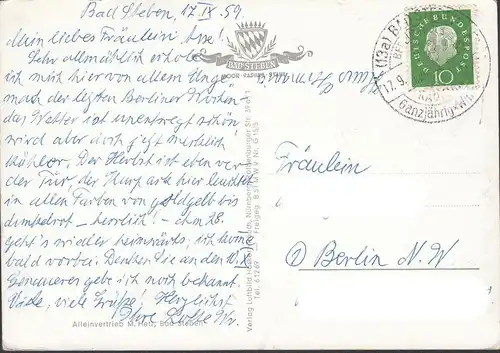 Bad Steben, 17. IX. 59.
Mein liebes Fräulein
Sehr allmählich erhole
ich mich hier von allem Unge-
mach der letzten Berliner Wochen.
Das Wetter ist unentwegt schön,
wird aber doch jetzt merklich
kühler. Der Herbst ist eben vor
der Tür, der Kurpark hier leuchtet
in allen Farben von goldgelb bis
dunkelrot – herrlich! – Am 28.
geht's wieder heimwärts; ich komme
bald vorbei. Denken Sie an den 10. X.!
Genaueres gebe ich noch bekannt.
Viele, viele Grüße! Herzlichst
Ihre Lotte
Alleinvertrieb M. Helz, Bad Steben
BAD STEBEN
MOOR - RADIUM - STAHL
Verlag Luftbild Nürnberg
Tel. 61269 Freigeg. BStMWV Nr. G 15/3
DEUTSCHE BUNDESPOST
10
(13a) BAD STEBEN
17.9.
RAD
Ganzjährig
Fräulein
1 Berlin N. W.